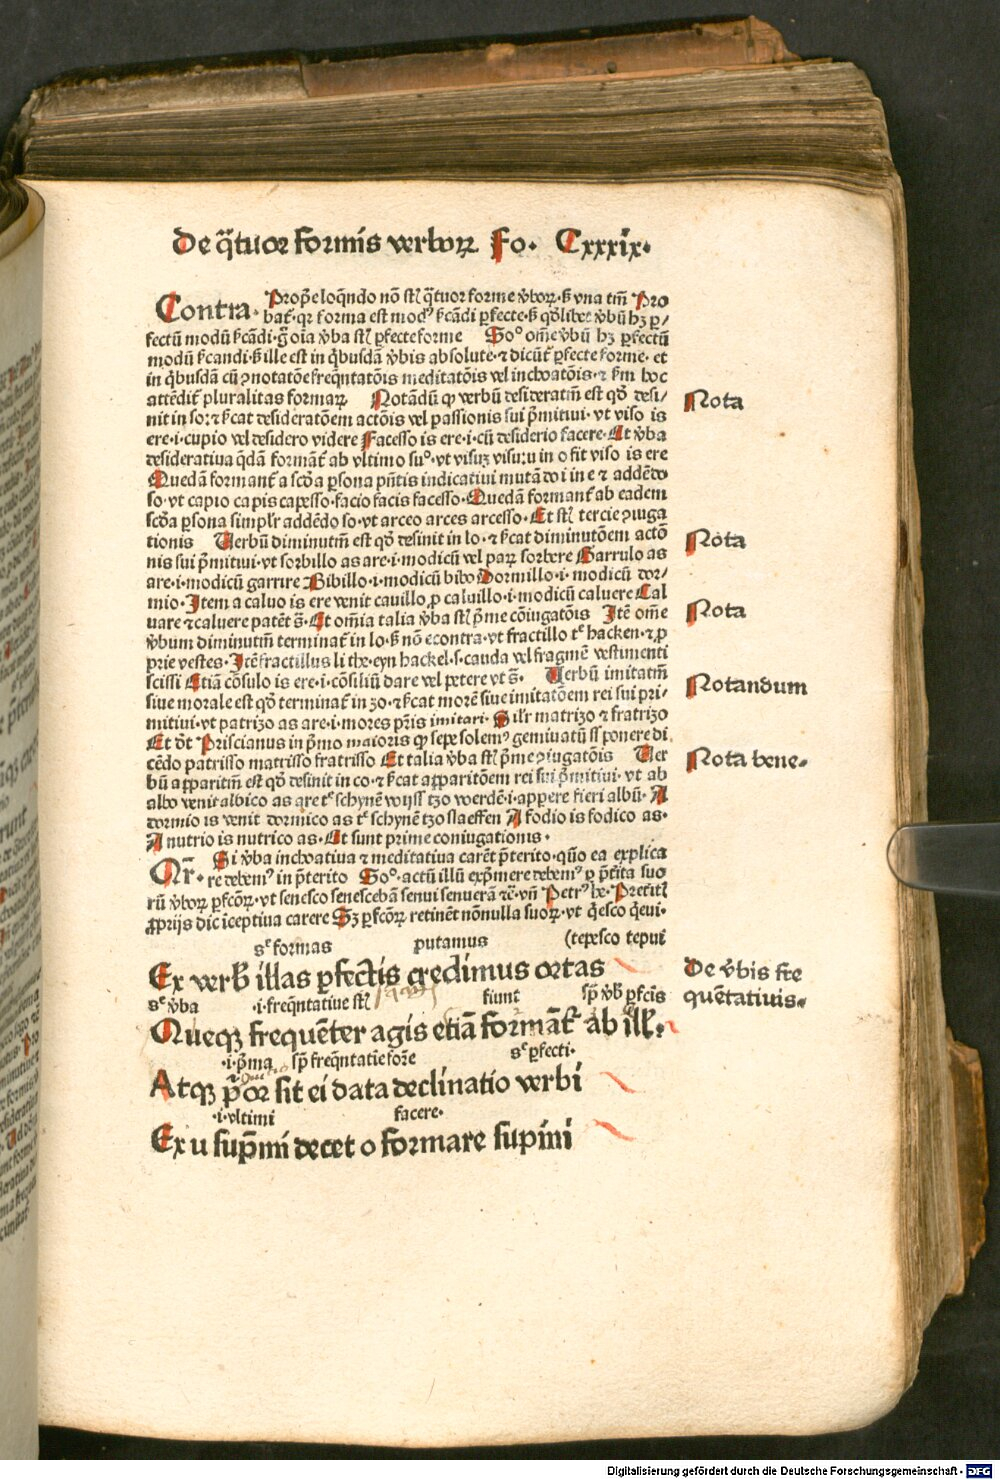 De q̄tuor formis verborꝝ Fo. Cxxxix.
Contra. Prop̄e loq̄ndo nō st̄ q̄tuor forme v̄borꝝ. s̄ vna tm̄ Pro
bat᷑. qꝛ forma est modꝰ s̄cādi ꝑfecte. s̄ qd̄libet v̄bū hꝫ ꝑ/
fectū modū s̄cādi. g̊ oīa v̄ba st̄ ꝑfecte forme Soꝰ om̄e v̄bū hꝫ ꝑfectū
modū s̄candi. s̄ ille est in q̇busdā v̄bis absolute. ⁊ dicūt᷑ ꝑfecte forme. et
in q̇busdā cū ꝯnotatōe freq̄ntatōis meditatōis vel inchoatōis. ⁊ s̄m hoc
attēdit᷑ pluralitas formaꝝ Notādū ꝙ verbū desideratm̄ est qd̄ desi/
nit in so: ⁊ s̄cat desideratōem actōis vel passionis sui p̄mitiui. vt viso is
ere .i. cupio vel desidero videre Facesso is ere .i. cū desiderio facere. Et v̄ba
desideratiua q̄dā formāt᷑ ab vltimo suꝰ. vt visuꝫ visu: u in o fit viso is ere
Quedā formant᷑ a scd̄a ꝑsona pn̄tis indicatiui mutādo i in e ⁊ addēdo
so. vt capio capis capesso. facio facis facesso. Quedā formant᷑ ab eadem
scd̄a ꝑsona simplr̄ addēdo so. vt arceo arces arcesso. Et st̄ tercie ꝯiuga
tionis Verbū diminutm̄ est qd̄ desinit in lo. ⁊ s̄cat diminutōem actō
nis sui p̄mitiui. vt sorbillo as are .i. modicū vel paꝝ sorbere Garrulo as
are .i. modicū garrire Bibillo .i. modicū bibo Dormillo .i. modicū dor/
mio. Item a caluo is ere venit cauillo ꝓ caluillo .i. modicū caluere Cal
uare ⁊ caluere patēt s̄. Et om̄ia talia v̄ba st̄ p̄me cōiugatōis Itē om̄e
v̄bum diminutm̄ terminat᷑ in lo. s̄ nō econtra. vt fractillo tͤ hacken. ⁊ ꝓ
prie vestes. Itē fractillus li the. eyn hackel .s. cauda vel fragmē vestimenti
scissi Etiā cōsulo is ere .i. cōsiliū dare vel petere vt s̄. Verbū imitatm̄
siue morale est qd̄ terminat᷑ in zo. ⁊ s̄cat morē siue imitatōem rei sui pri/
mitiui. vt patrizo as are .i. mores pr̄is imitari. Sil̄r matrizo ⁊ fratrizo
Et dt̄ Priscianus in p̄mo maioris ꝙ sepe solemꝰ geminatū ss ponere di
cēdo patrisso matrisso fratrisso Et talia v̄ba st̄ p̄me ꝯiugatōis Ver
bū apparitm̄ est qd̄ desinit in co. ⁊ s̄cat apparitōem rei sui p̄mitiui. vt ab
albo venit albico as are tͤ schynē wijss tzo werdē .i. appere fieri albū. A
dormio is venit dormico as tͤ schynēt tzo slaeffen A fodio is fodico as.
A nutrio is nutrico as. Et sunt prime coniugationis.
Qr̄. Si v̄ba inchoatiua ⁊ meditatiua carēt p̄terito. quō ea explica
re debemꝰ in p̄terito Soꝰ. actū illū exp̄mere debemꝰ ꝑ p̄tita suo
rū v̄borꝝ ꝑfcōꝝ. vt senesco senescebā senui senuerā ⁊c̄. vn̄ Petrꝰ he. Pretitꝰ
ꝓprijs dic īceptiua carere Sꝫ ꝑfcōꝝ retinēt nōnulla suoꝝ. vt q̇esco q̇eui.
(tepesco tepui
sͤ formas putamus
Ex verb̄ illas ꝑfectis credimus ortas
sͤ v̄ba .i. freq̄ntatiue st̄ fiunt sp̄ v̄b̄ ꝑfcis
Queqꝫ frequēter agis etiā formāt᷑ ab ill̄.
.i. p̄ma sp̄ freq̄ntatie forē sͤ ꝑfecti.
Atqꝫ p̄or sit ei data declinatio verbi
.i. vltimi facere.
Ex u sup̄mi decet o formare supini
Nota
Nota
Nota
Notandum
Nota bene.
De v̄bis fre
quētatiuis.
Digitalisierung gefördert durch die Deutsche Forschungsgemeinschaft - DFG